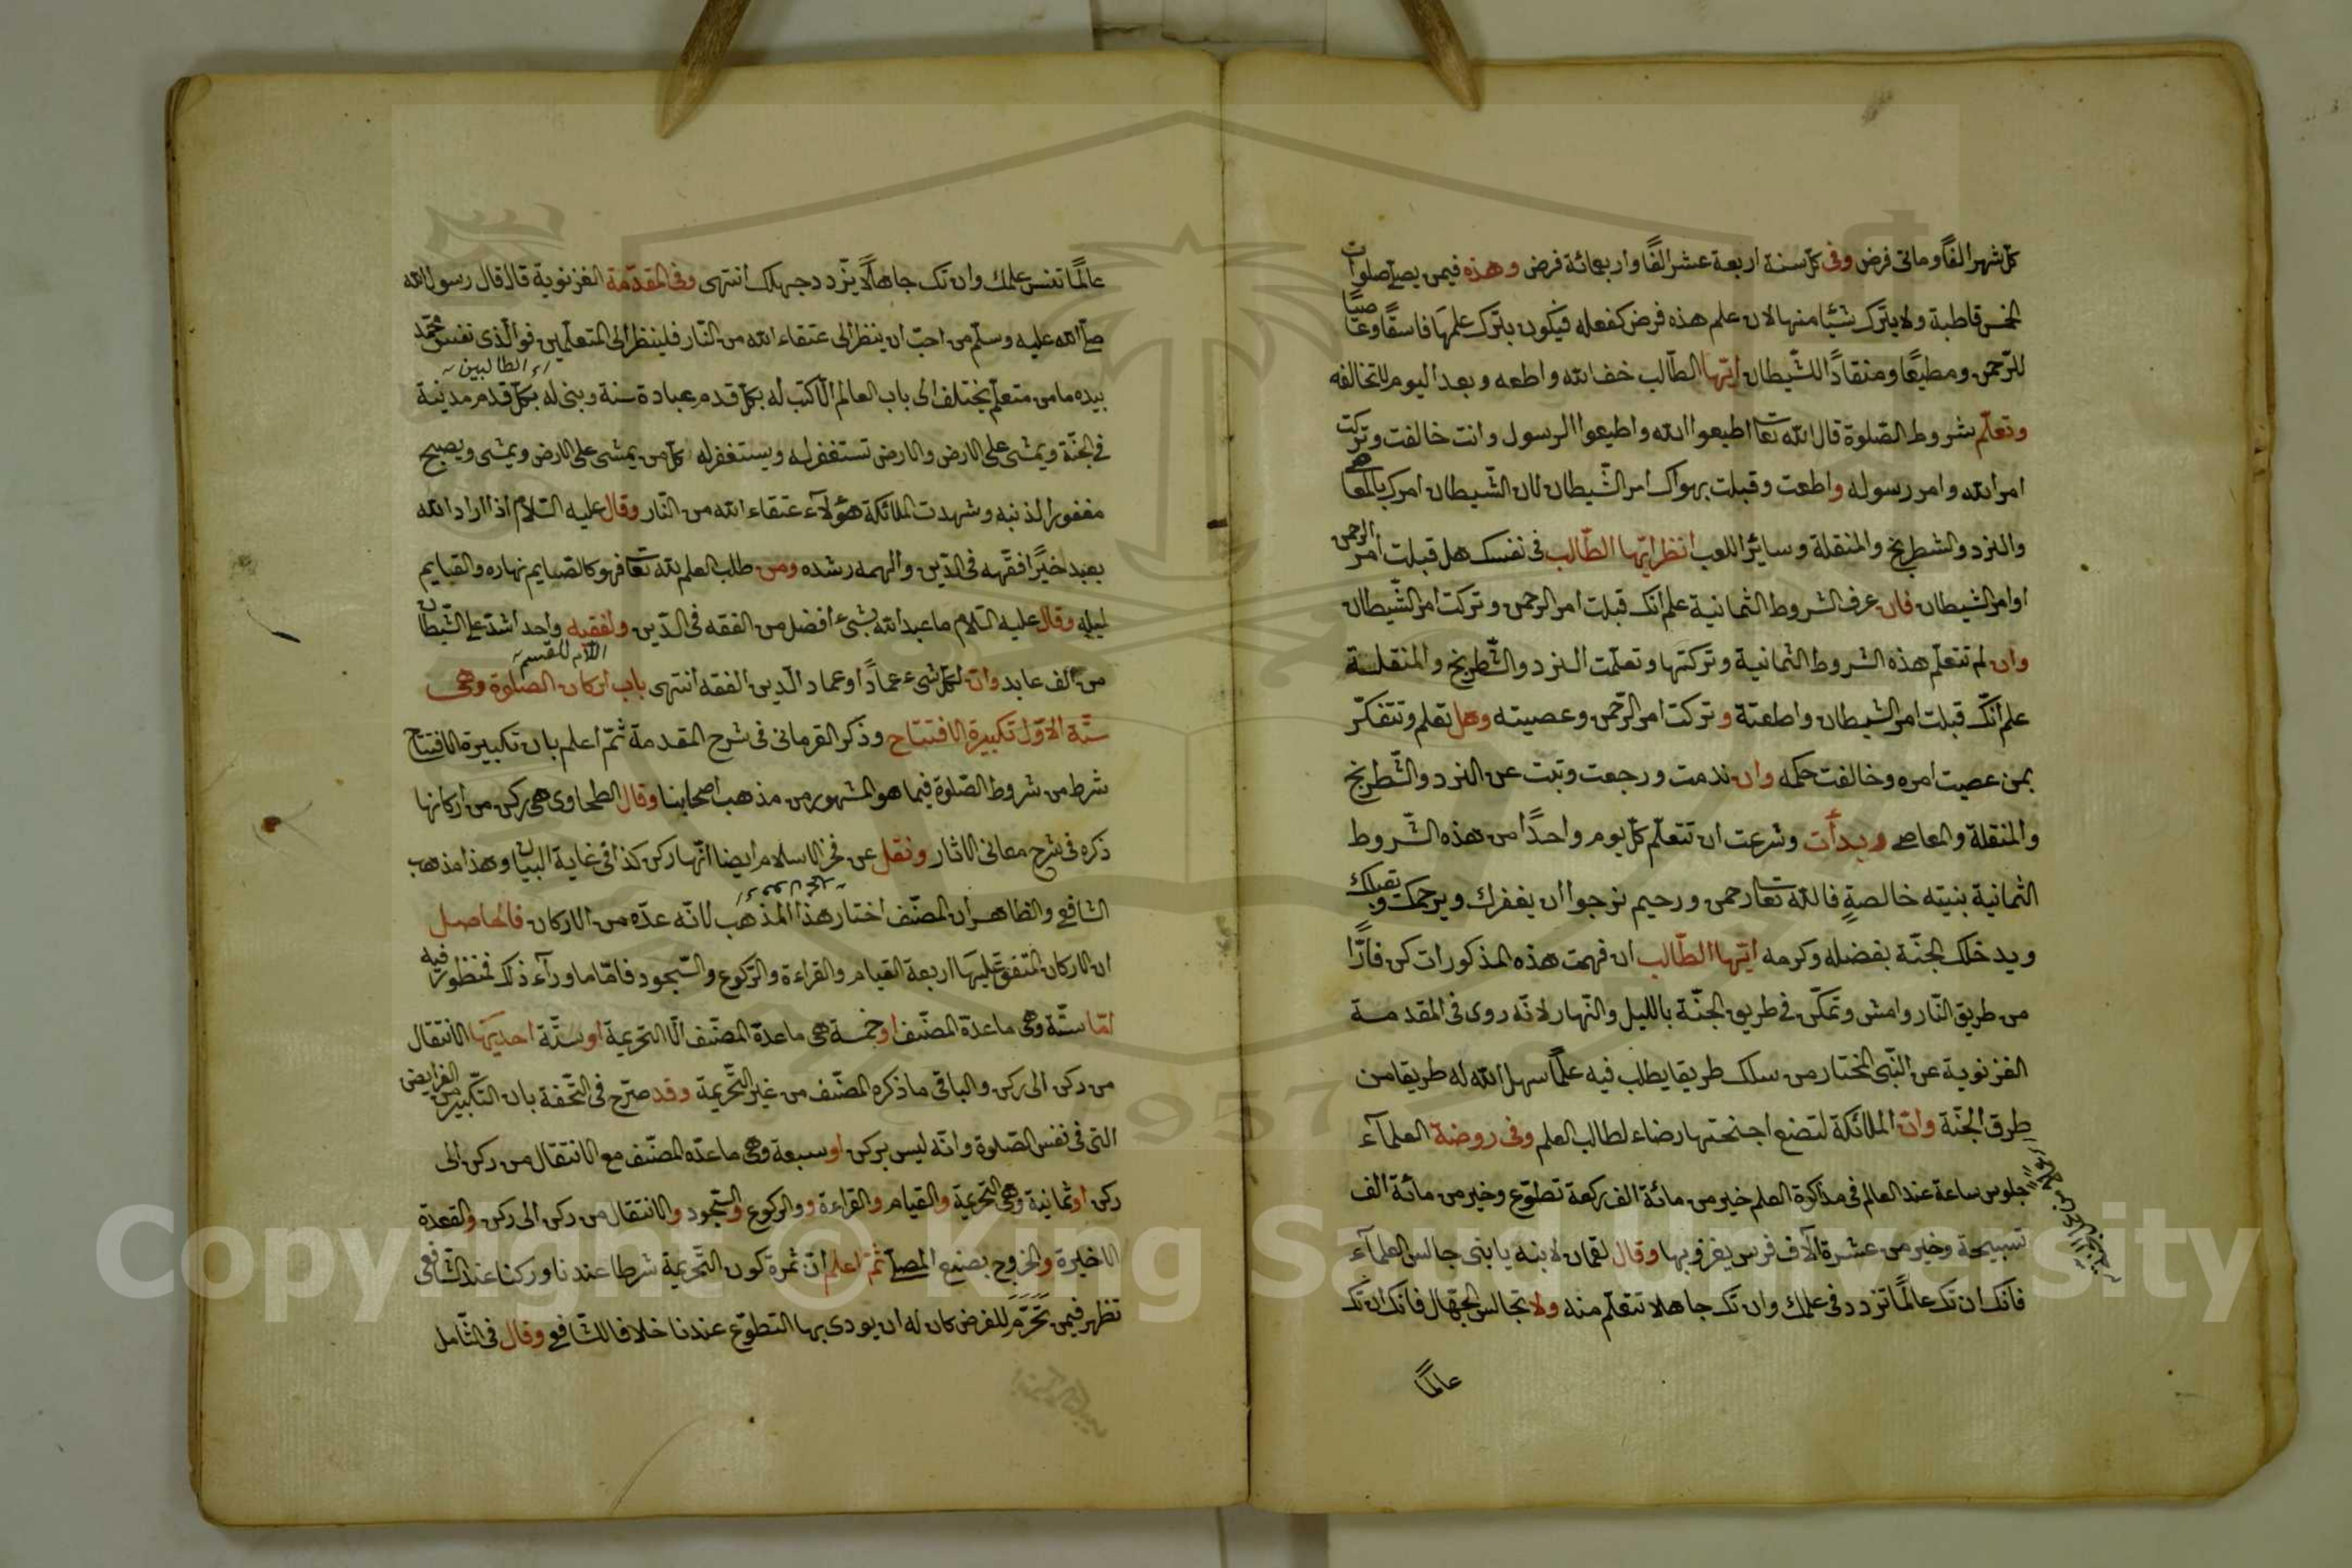 كل شهر الفًا ومأتى فرض وفى كل سنة اربعة عشر الفًا واربعمائة فرض وهذه فيمن يصلى صلوات
الخمس قاطبة ولا يترك شيئًا منها لان علم هذه فرض كفعله فيكون بترك علمها فاسقًا وعاصيًا
للرّحمن ومطيعًا ومنقادًا للشّيطان ايّها الطّالب خف الله واطعه وبعد اليوم لا تخالفه
وتعلّم شروط الصّلوة قال الله تعا اطيعوا الله واطيعوا الرسول وانت خالفت وتركت
امر الله وامر رسوله واطعت وقبلت بهواك امر الشّيطان لان الشّيطان امرك بالمعاصى
والنرد والشطرنج والمنقلة وسائر اللعب انظر ايّها الطّالب فى نفسك هل قبلت امر الرحمن
او امر الشيطان فان عرف الشروط الثمانية علم انّك قبلت امر الرحمن وتركت امر الشّيطان
وان لم تتعلّم هذه الشروط الثمانية وتركتها وتعلّمت النرد والشّطرنج والمنقلة
علم انّك قبلت امر الشيطان واطعتة وتركت امر الرّحمن وعصيته وهل تعلم وتتفكّر
بمن عصيت امره وخالفت حكمه وان ندمت ورجعت وتبت عن النرد والشّطرنج
والمنقلة والمعاصى وبدأت وشرعت ان تتعلّم كلّ يوم واحدًا من هذه الشّروط
الثمانية بنيته خالصةٍ فالله تعا رحمن ورحيم نرجوا ان يغفرك ويرحمك ويقبلك
ويدخلك الجنّة بفضله وكرمه ايّها الطّالب ان فهمت هذه المذكورات كن فارًّا
من طريق النّار وامش وتمكّن فى طريق الجنّة بالليل والنّهار لانّه روى فى المقدمة
الغزنوية عن النّبى المختار من سلك طريقا يطلب فيه علمًا سهل الله له طريقا من
طرق الجنّة وانّ الملائكة لتضع اجنحتها رضاء لطالب العلم وفى روضة العلمآء
جلوس ساعة عند العالم فى مذاكرة العلم خير من مائة الف ركعة تطوّع وخير من مائة الف
تسبيحة وخير من عشرة آلاف فرس يغزو بها وقال لقمان لابنه يا بنى جالس العلمآء
فانّك ان تك عالمًا تزدد فى علمك وان تك جاهلا تتعلّم منه ولا تجالس الجهّال فانّك ان تك
عالمًا
عالمًا تنس علمك وان تك جاهلًا يزّدد جهلك انتهى وفى المقدّمة الغزنوية قال قال رسول الله
صلى الله عليه وسلّم من احبّ ان ينظر الى عتقاء الله من النّار فلينظر الى المتعلّمين فو الّذى نفس محمّد
اى الطالبين
بيده ما من متعلّم يختلف الى باب العالم الّا كتب له بكلّ قدم عبادة سنة وبنى له بكلّ قدم مدينة
فى الجنّة ويمشى على الارض والارض تستغفر له ويستغفر له كلّ من يمشى على الارض ويمشى ويصبح
مغفورا لذنبه وشهدت الملائكة هؤلآء عتقاء الله من النّار وقال عليه السّلام اذا اراد الله
بعبد خيرًا فقّهه فى الدّين والهمه رشده ومن طلب العلم لله تعا فهو كالصايم نهاره والقيايم
ليله وقال عليه السّلام ما عبد الله بشىء افضل من الفقه فى الدّين ولفقيه واحد اشدّ على الشّيطان
اللام للقسم
من الف عابد وانّ لكلّ شىء عمادًا وعماد الّدين الفقه انتهى باب اركان الصلوة وهى
ستّة الاوّل تكبيرة الافتتاح وذكر القرمانى فى شرح المقدمة ثمّ اعلم بان تكبيرة الافتتاح
شرط من شروط الصّلوة فيما هو المشهور من مذهب اصحابنا وقال الطحاوى هى ركن من اركانها
ذكره فى شرح معانى الاثار ونقل عن فخر الاسلام ايضا انّها ركن كذا فى غاية البيان وهذا مذهب
الشافعى والظاهر ان المصنّف اختار هذا المذهب لانّه عدّه من الاركان فالحاصل
ان الاركان المتفق عليها اربعة القيام والقراءة والرّكوع والسّجود فامّا ما ورآء ذلك فمنظور فيه
امّا ستّة وهى ما عدّة المصنّف او خمسة هى ما عدّة المصنّف الّا التحريمة او ستّة احديها الانتقال
من ركن الى ركن والباقى ما ذكره المصنّف من غير التّحريمة وقد صرّح فى التّحفة بان التّكبير من الفرايض
التى فى نفس الصّلوة وانّه ليس بركن او سبعة وهى ما عدّه المصنّف مع الانتقال من ركن الى
ركن او ثمانية وهى التحريمة والقيام والقراءة ووالركوع والسّجود والانتقال من ركن الى ركن والقعدة
الاخيرة والخروج بصنع المصلّى ثمّ اعلم انّ ثمرة كون التّحريمة شرطا عندنا وركنا عند الشّافعى
تظهر فيمن تحرّم للفرض كان له ان يودى بها التطوّع عندنا خلافا للشّافعى وقال فى التامل